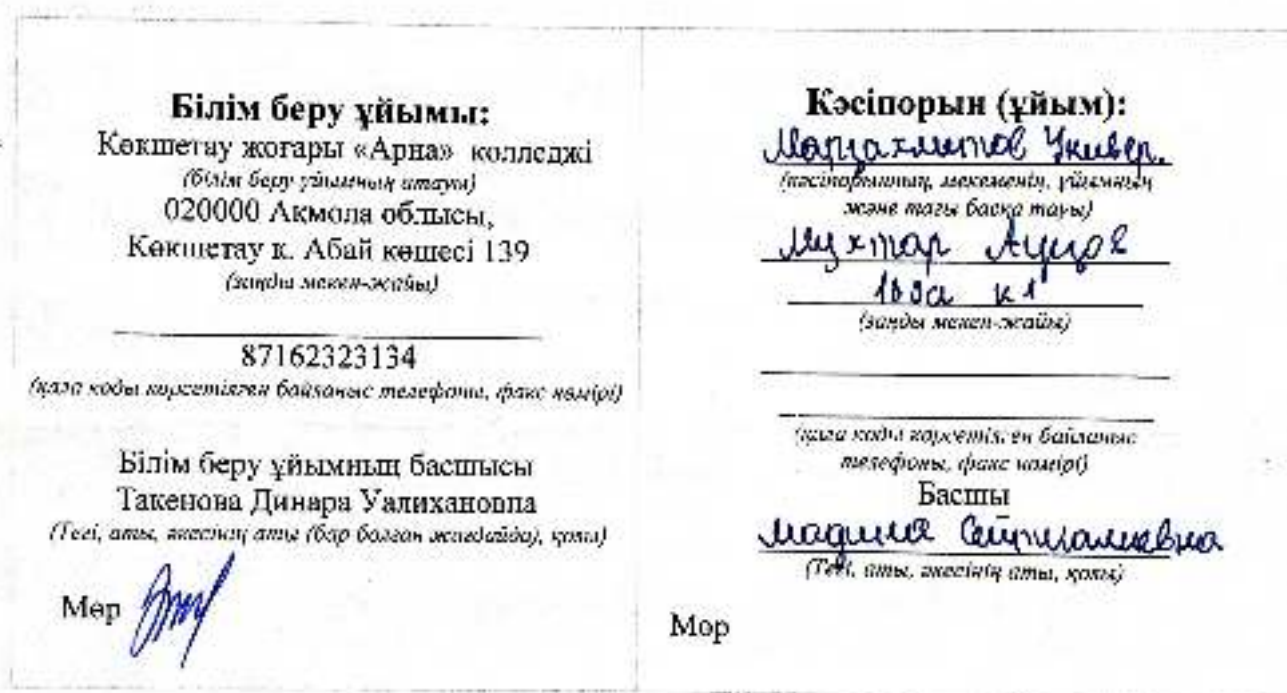 Білім беру ұйымы:
Көкшетау жоғары «Арна» колледжі
(білім беру ұйымның атауы)
020000 Ақмола облысы,
Көкшетау қ. Абай көшесі 139
(заңды мекен-жайы)
87162323134
(қала коды көрсетілген байланыс телефоны, факс нөмірі)
Білім беру ұйымның басшысы
Такенова Динара Уалихановна
(Тегі, аты, әкесінің аты (бар болған жағдайда), қолы)
Мөр
Кәсіпорын (ұйым):
Мырзахметов Универ.
(кәсіпорынның, мекеменің, ұйымның
және тағы басқа тауы)
Мухтар Ауизов
к1
(заңды мекен-жайы)
(қала коды көрсетілген байланыс
телефоны, факс нөмірі)
Басшы
Мадина
(Тегі, аты, әкесінің аты, қолы)
Мөр